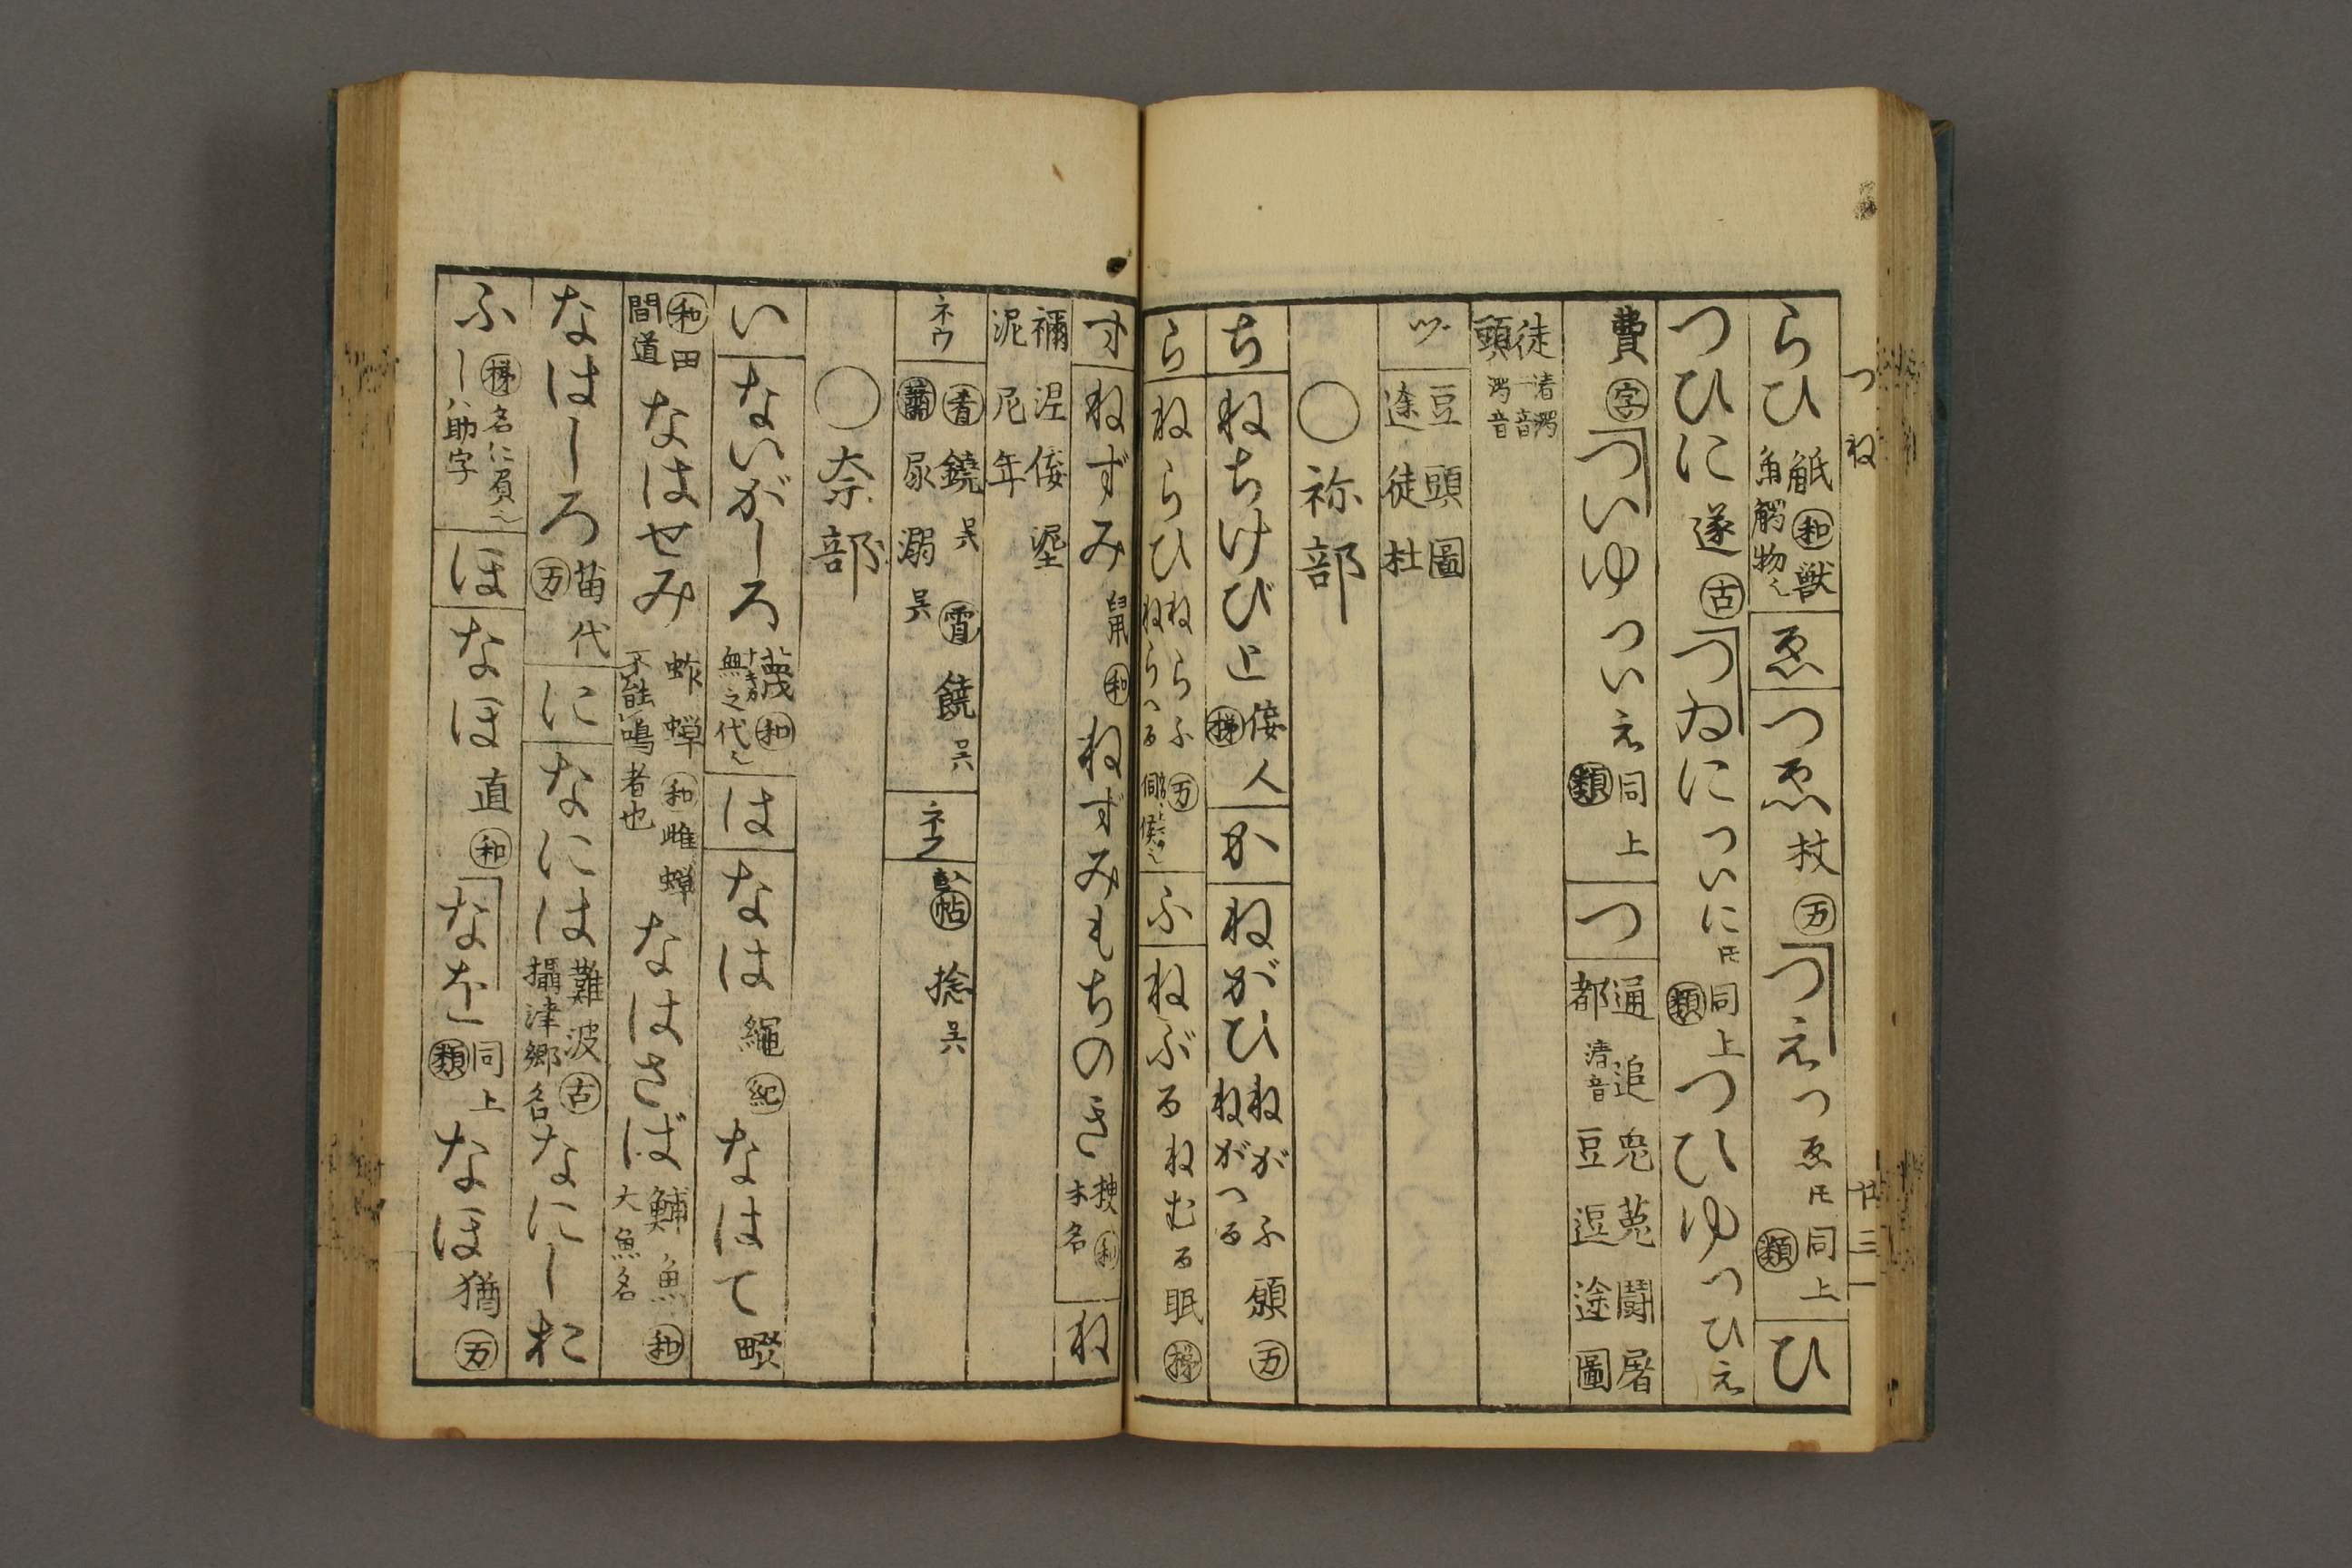 つ ね 廿三
らひ 觝 和 獣角觸物也 ゑ つゑ 杖 万 つえ つゑ 同上 類 ひ
つひに 遂 古 つゐに ついに 同上 類 つひゆ つひえ
費 字 ついゆ つい江 同上 類 つ 通 追 菟 闘 屠 都 清音 豆 逗 途 圖
徒 清濁二音 頭 濁音
ヅ 豆 頭 圖 途 徒 杜
〇祢部
ち ねちけびと 佞人 か ねがひ ねがふ ねがつる 願 万
ら ねらひ ねらふ ねらへる 万 ふ ねぶる ねむる 眠
す ねずみ 鼠 和 ねずみもちのき 木名 和 ね
禰 涅 佞 埿 泥 尼 年
ネウ 鐃 呉 尿 溺 呉 霄 饒 呉 ネフ 帖 捻 呉
〇奈部
い ないがしろ 蔑 和 無之代也 は なは 縄 紀 なはて 畷
和 田間道 なはせみ 蚱蝉 和 雌蝉不能鳴者也 なはさば 大魚名 和
なはしろ 苗代 万 に なには 難波 古 攝津郷名 なにしお
ふ 名に負也 しハ助字 ほ なほ 直 和 なを 同上 類 なほ 猶 万